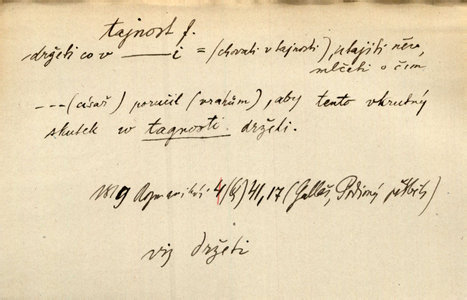 tajnost f.
držeti co v ——— i = (chovati v tajnosti), utajiti něco,
mlčeti o čem
--- (císař) poručil (vrahům), aby tento ukrutný
skutek w tagnosti držeti.
1819 4 (6) 41, 17 (Galaš,
viz držeti